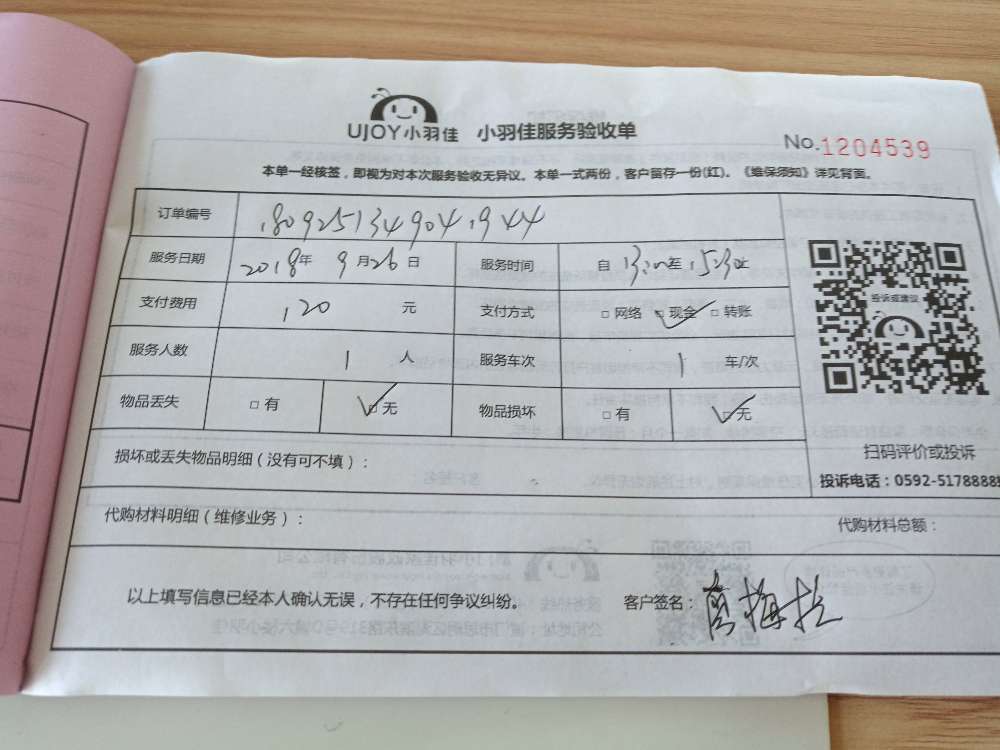 UJOY小羽佳 小羽佳服务验收单
No.1204539
本单一经核签，即视为对本次服务验收无异议。本单一式两份，客户留存一份(红)。《维保须知》详见背面。
订单编号 1809251349041944
服务日期 2018年 9月26日 服务时间 自13:00至15:30止
支付费用 120 元 支付方式 □网络 □现金 □转账
服务人数 1 人 服务车次 1 车/次
物品丢失 □有 □无 物品损坏 □有 □无
投诉或建议
扫码评价或投诉
投诉电话：0592-5178888
损坏或丢失物品明细(没有可不填)：
代购材料明细(维修业务)： 代购材料总额：
以上填写信息已经本人确认无误，不存在任何争议纠纷。 客户签名：